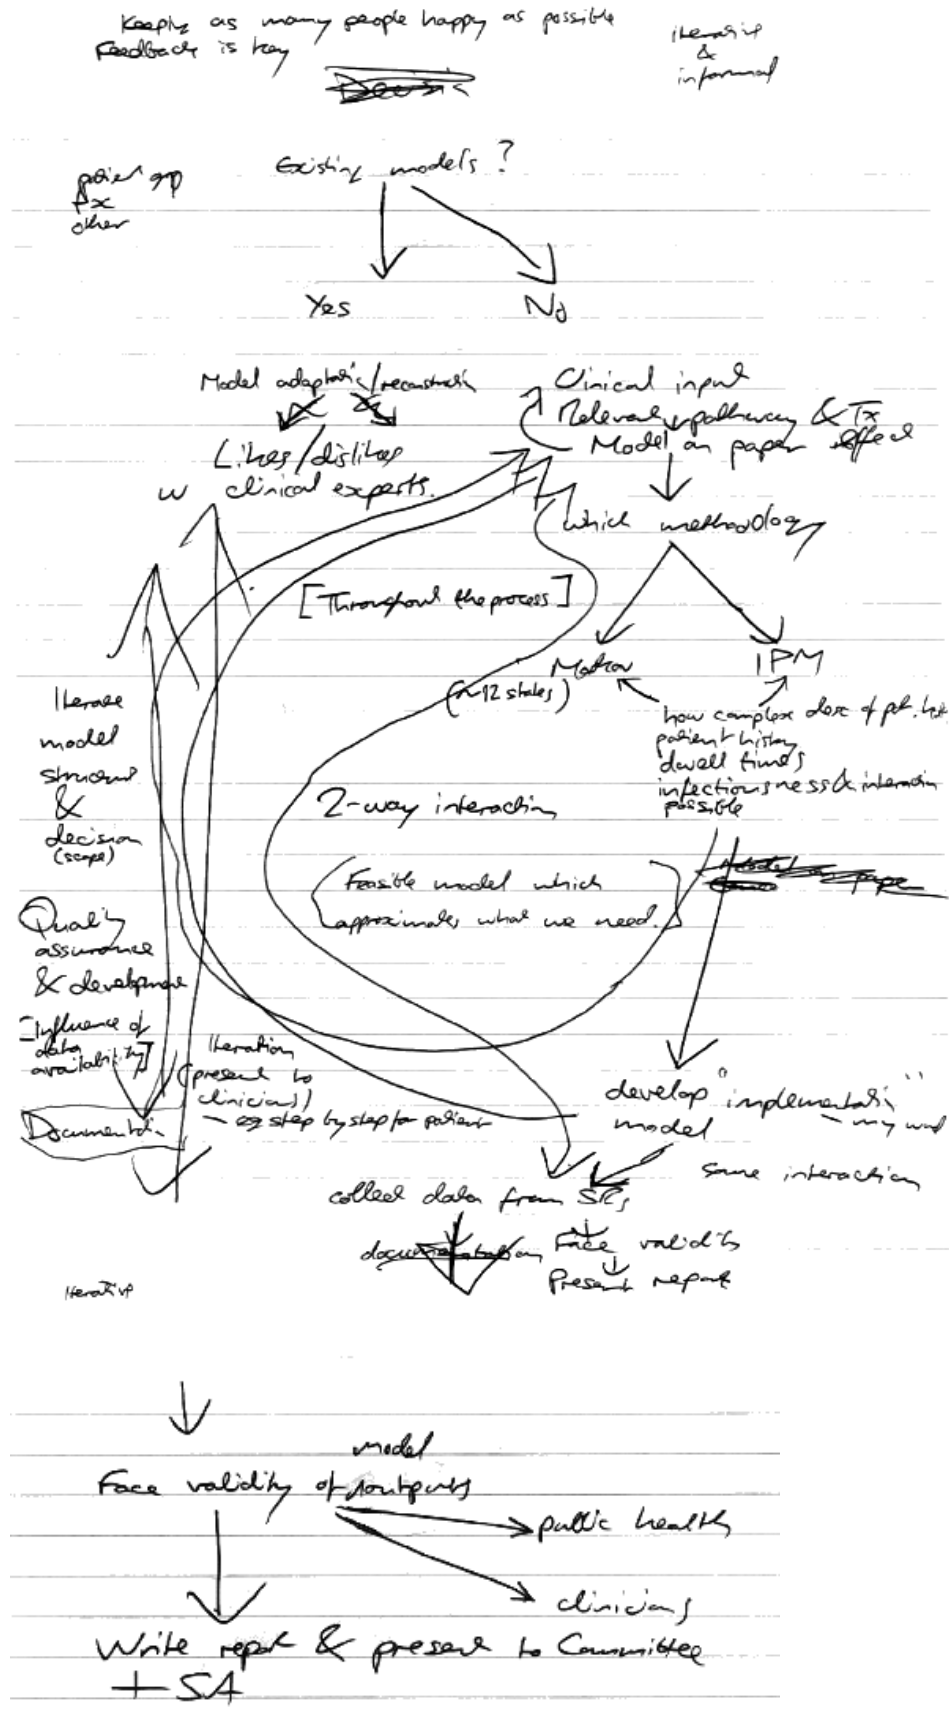 Keeping as many people happy as possible
Feedback is key
iterative
&
informal
Existing models?
patient grp
Tx
other
Yes
No
Model adaptatio/reconstructio
Likes/dislikes
w clinical experts.
Clinical input
Relevant pathway & Tx
effect
Model on paper
which methodology
[Throughout the process]
Markov
(~12 states)
IPM
how complex desc of pt. hist
patient history
dwell times
infectiousness & interaction
possible
Iterate
model
structure
&
decision
(scope)
2-way interaction
(Feasible model which
approximates what we need.)
Quality
assurance
& development
[Influence of
data
availability]
Documentatio
Iteration
(present to
clinicians)
- eg step by step for patient
develop "implementatio"
model
- my word
some interaction
collect data from SRs
documentation
Face validity
Present report
Iterative
model
Face validity of outputs
public health
clinicians
Write report & present to Committee
+ SA